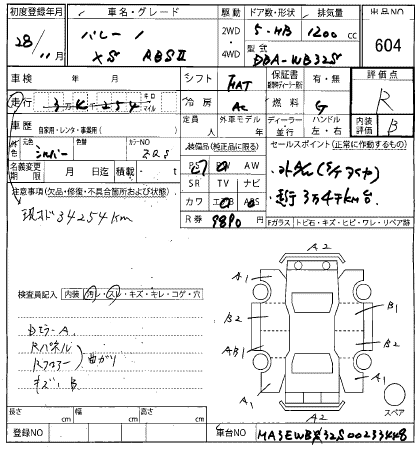 初度登録年月 車名・グレード 駆動 ドア数・形状 排気量 出品NO
28/11月 バレーノ 2WD 5-HB 1200cc 604
XS 4WD 型式 DBA-WB32S
車検 年 月 シフト FAT 保証書 有・無 評価点
走行 3万4千254 キロ マイル 冷房 AC 燃料 G R
車歴 自家用・レンタ・事業用( ) 定員 人 外車モデル 年 ディーラー 並行 ハンドル 左・右 内装評価 B
色 元色 シルバー カラーNO ZQS 装備品(純正品に限る) セールスポイント(正常に作動するもの)
名義変更期限 月 日迄 積載・ t PS PW AW
注意事項(欠品・修復・不具合箇所および状態) SR TV ナビ 走行3万4千km台
現状34254km カワ エアB ABS
R券 9890 Fガラス トビ石・キズ・ヒビ・ワレ・リペア跡
A2
A1
B2 B1
AB1 B2
A1 A1
A2
スペア
検査員記入 内装 汚レ・スレ・キズ・キレ・コゲ・穴
Dミラー A
Rパネル
Rフロアー 曲がり
キズ, B
長さ cm 幅 cm 高さ cm
登録NO 車台NO MA3EWB32S00233448